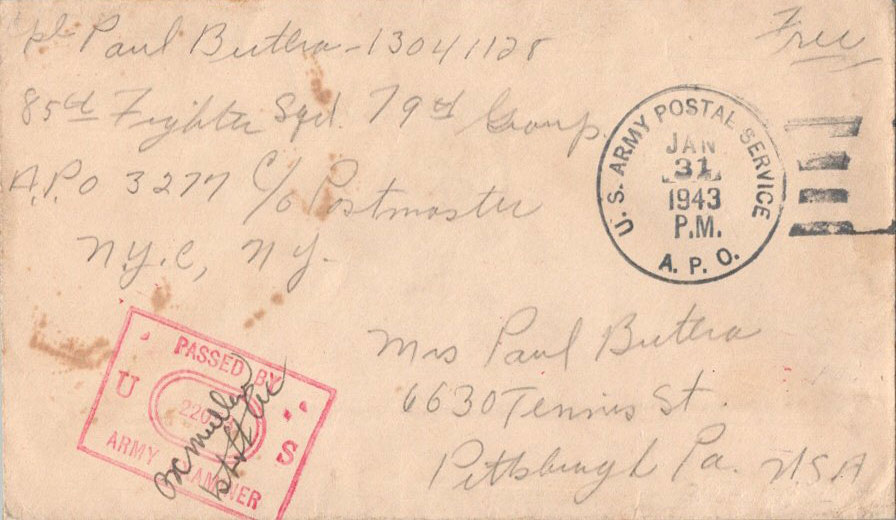 Cpl Paul Buttra - 13041128
Free
85th Fighter Sqd. 79th Group.
A.P.O 3277 c/o Postmaster
N.Y.C, N.Y.
U.S. ARMY POSTAL SERVICE
JAN
31
1943
P.M.
A. P. O.
PASSED BY
U S
ARMY EXAMINER
Mrs Paul Buttra
6630 Tennis St.
Pittsburgh Pa. USA